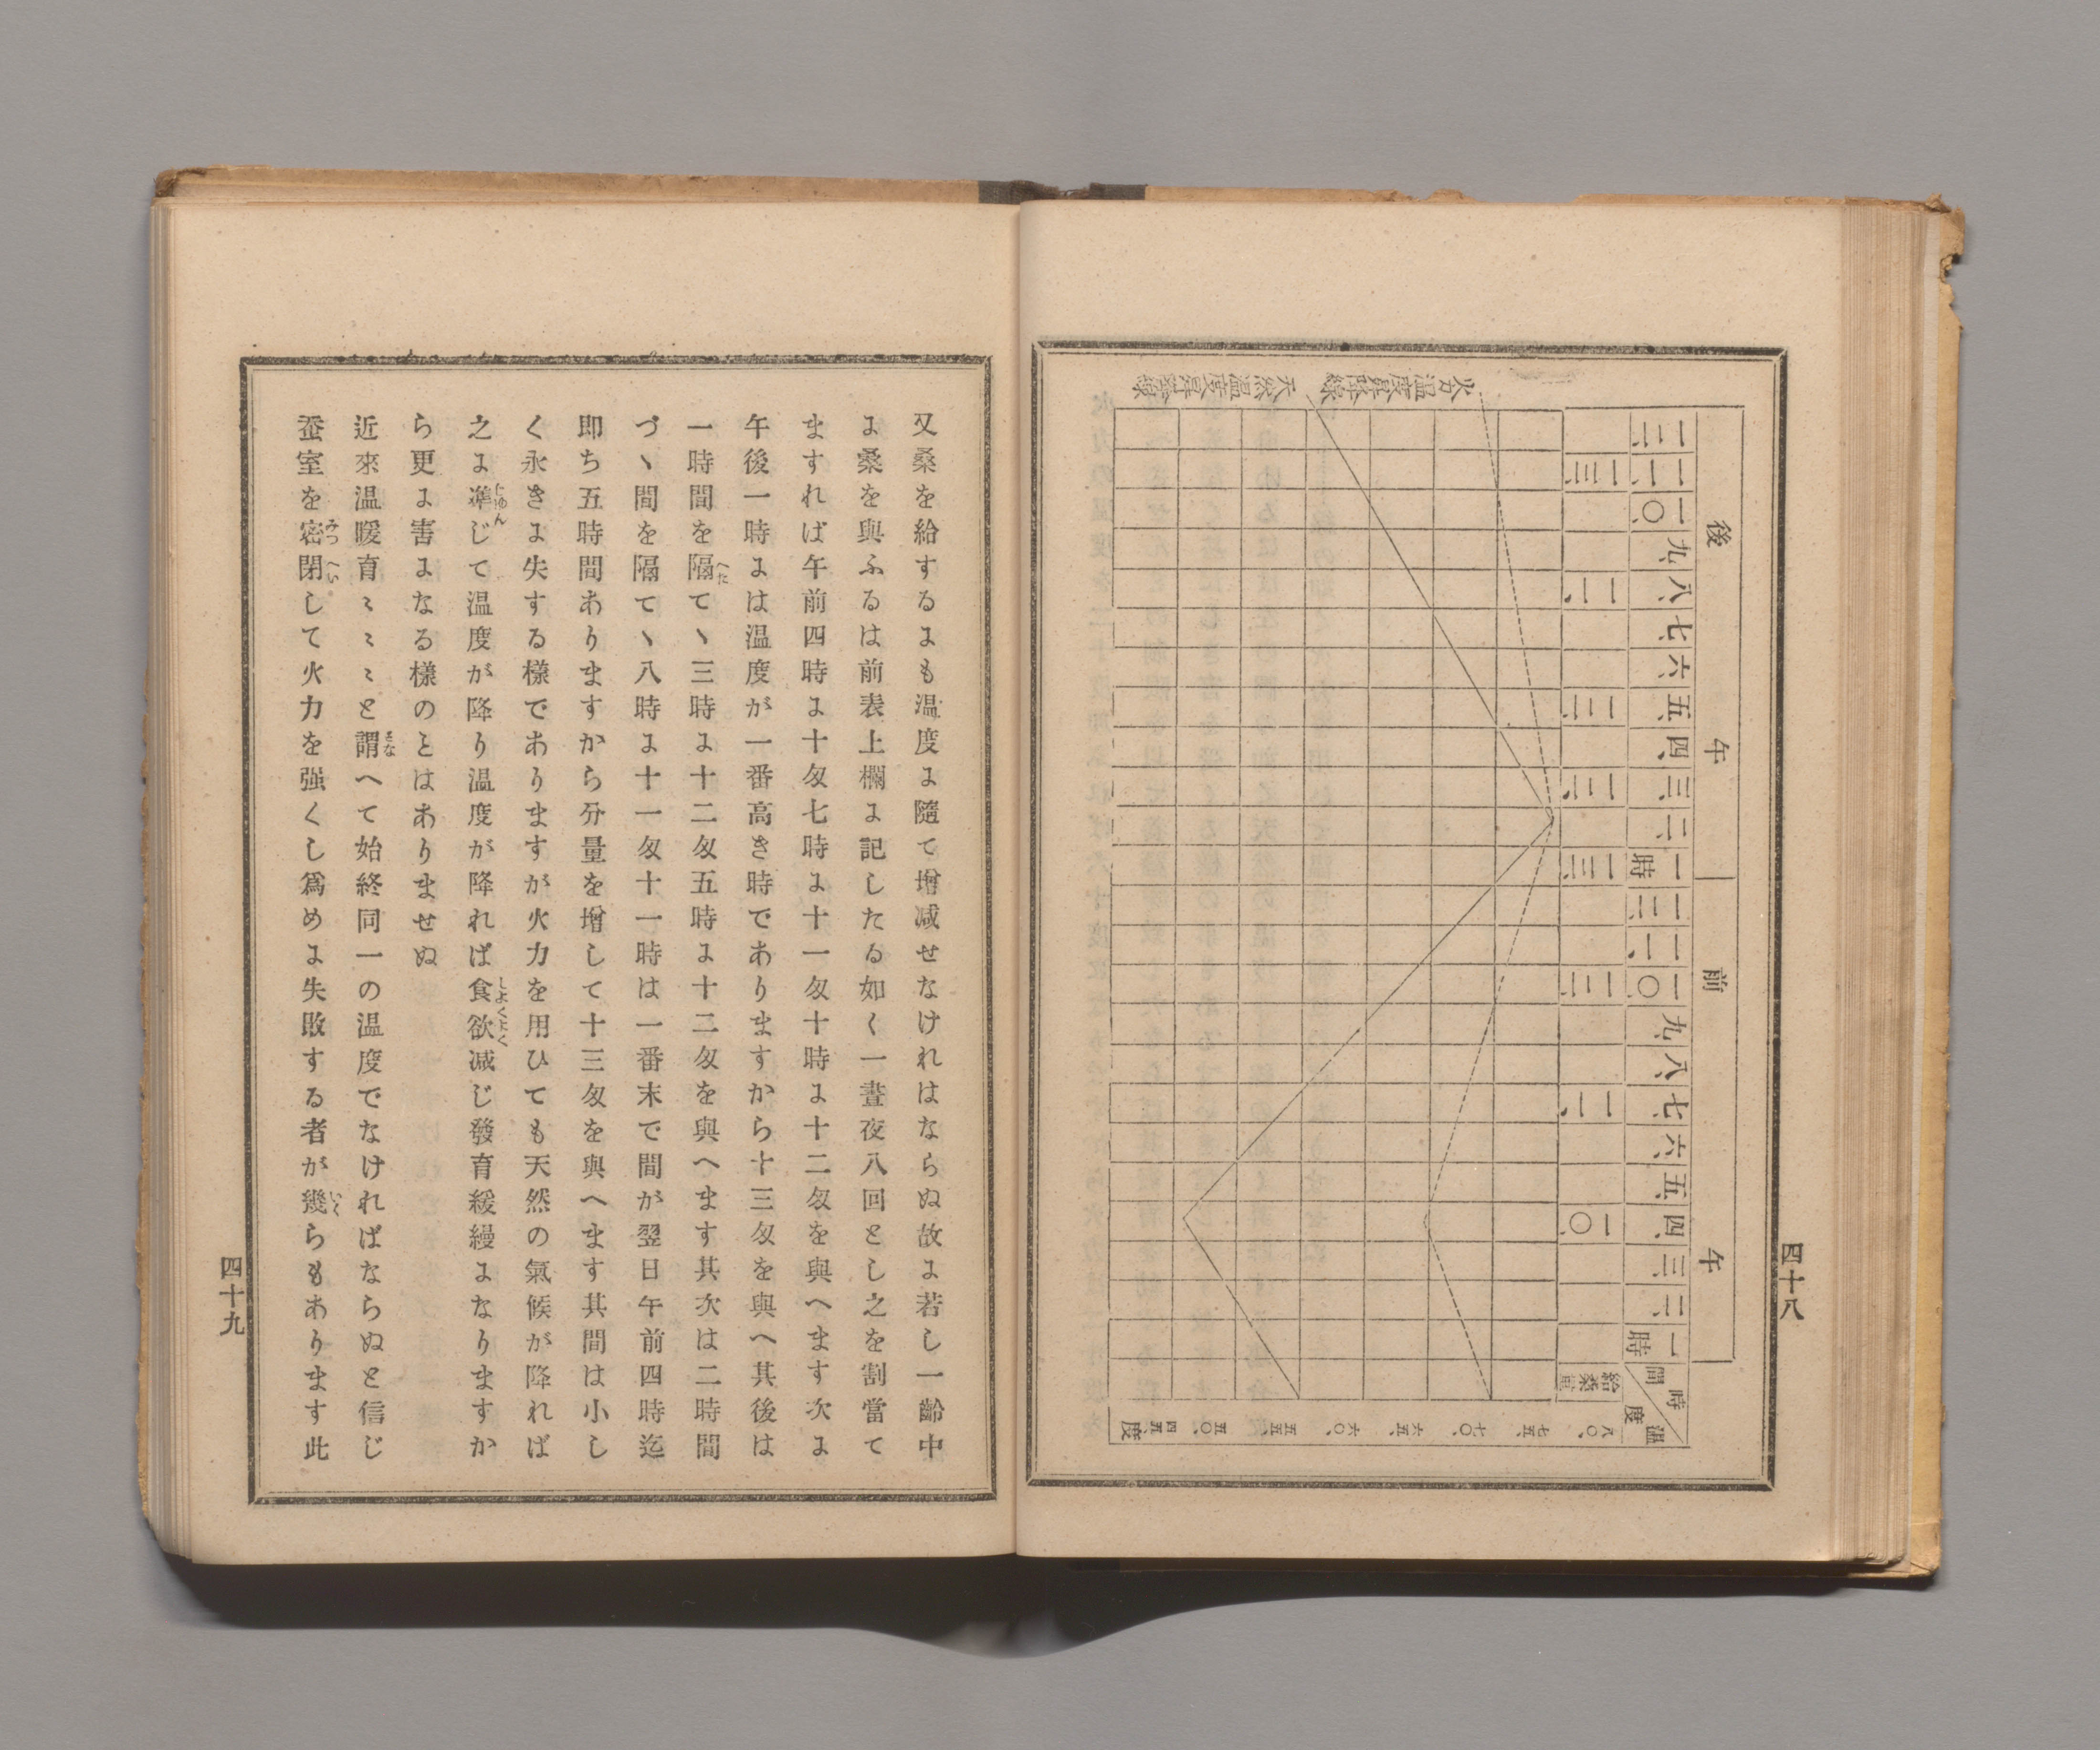 四十八
午　前　午　後
時間
温度
一時 二、 三、 四、 五、 六、 七、 八、 九、 一〇、 一一、 一二、 一時 二、 三、 四、 五、 六、 七、 八、 九、 一〇、 一一、 一二、
給桑量 一〇、 一一、 一二、 一三、 一二、 一二、 一一、 一三、
八〇、
七五、
七〇、
六五、
六〇、
五五、
五〇、
四五、
度
温度昇降線
天然温度昇降線
又桑を給するにも温度に隨て增减せなけれはならぬ故に若し一齡中
に桑を與ふるは前表上欄に記したる如く一晝夜八回とし之を割當て
ますれば午前四時に十匁七時に十一匁十時に十二匁を與へます次に
午後一時には温度が一番高き時でありますから十三匁を與へ其後は
一時間を隔てヽ三時に十二匁五時に十二匁を與へます其次は二時間
づヽ間を隔てヽ八時に十一匁十一時は一番末で間が翌日午前四時迄
即ち五時間ありますから分量を增して十三匁を與へます其間は小し
く永きに失する樣でありますが火力を用ひても天然の氣候が降れば
之に凖じて温度が降り温度が降れば食欲减じ發育緩縵になりますか
ら更に害になる樣のとはありませぬ
近來温暖育〻〻〻と謂へて始終同一の温度でなければならぬと信じ
蚕室を密閉して火力を强くし爲めに失敗する者が幾らもあります此
四十九